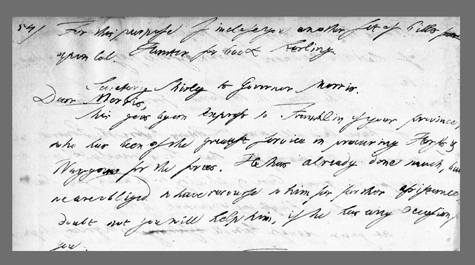 For this purpose I inclose you another set of Bills
upon Col. Hunter for £ Sterling
Secretary Shirly to Governor Morris.
Dear Morris,
This goes by an Express to Franklin of your province,
who has been of the greatest service in procuring Horses &
Waggons for the forces. He has already done much, but
we are obliged to have recourse to him for further assistance
doubt not you will help him, if he has any Occasion
you.